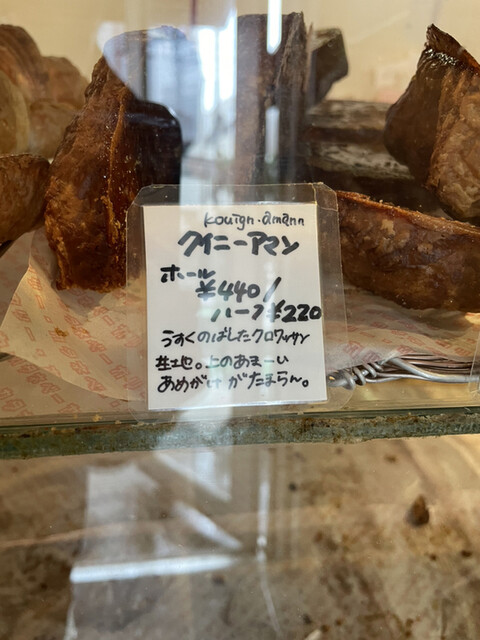 kouign.amann
クイニーアマン
ホール
¥440/
ハーフ¥220
うすくのばしたクロワッサン
生地。上のあまーい
あめがけがたまらん。